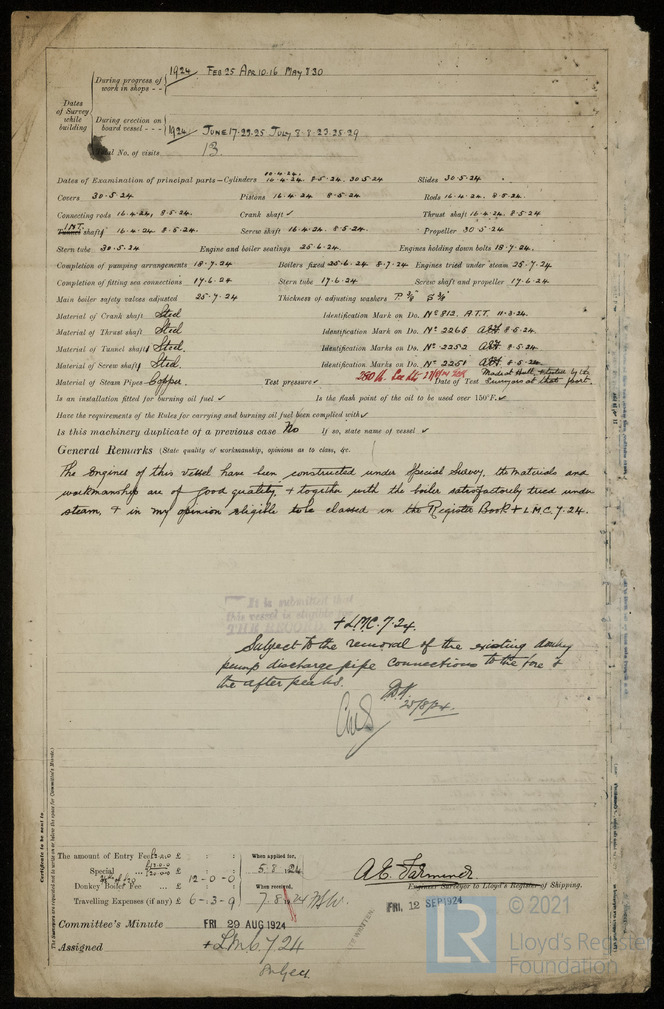 During progress of work in shops - - 1924 FEB 25 APR 10.16 MAY 8 30
Dates of Survey while building
During erection on board vessel - - - 1924 JUNE 17.23.25 JULY 3.8.23.25.29
Total No. of visits 13
Dates of Examination of principal parts—Cylinders 10.4.24. 16.4.24. 8.5.24. 30.5.24 Slides 30.5.24
Covers 30.5.24 Pistons 16.4.24 8.5.24. Rods 16.4.24. 8.5.24.
Connecting rods 16.4.24, 8.5.24. Crank shaft ✓ Thrust shaft 16.4.24. 8.5.24
INT. Tunnel shaft 16.4.24 8.5.24. Screw shaft 16.4.24. 8.5.24. Propeller 30.5.24.
Stern tube 30.5.24 Engine and boiler seatings 25.6.24. Engines holding down bolts 18.7.24.
Completion of pumping arrangements 18.7.24 Boilers fixed 25.6.24 8.7.24 Engines tried under steam 25.7.24
Completion of fitting sea connections 17.6.24 Stern tube 17.6.24 Screw shaft and propeller 17.6.24.
Main boiler safety valves adjusted 25.7.24 Thickness of adjusting washers
Material of Crank shaft Steel Identification Mark on Do. No 812. A.T.T. 11.3.24.
Material of Thrust shaft Steel Identification Mark on Do. No 2265 8.5.24.
Material of Tunnel shafts Steel Identification Marks on Do. No 2252 8.5.24.
Material of Screw shafts Steel Identification Marks on Do. No 2251 8.5.24
Material of Steam Pipes Copper Test pressure ✓ Date of Test Made at Hull, & tested by the Surveyors at that port.
Is an installation fitted for burning oil fuel ✓ Is the flash point of the oil to be used over 150°F. ✓
Have the requirements of the Rules for carrying and burning oil fuel been complied with ✓
Is this machinery duplicate of a previous case No If so, state name of vessel ✓
General Remarks (State quality of workmanship, opinions as to class, &c.
The Engines of this vessel have been constructed under Special Survey, the materials and
workmanship are of good quality, & together with the boiler satisfactorily tried under
steam, & in my opinion eligible to be classed in the Register Book + L.M.C. 7.24.
It is submitted that
this vessel is eligible for
THE RECORD
+ L.M.C. 7.24.
Subject to the removal of the existing donkey
pump discharge pipe connections to the fore &
the after peaks.
Certificate to be sent to
The Surveyors are requested not to write on or below the space for Committee's Minute.
The amount of Entry Fee £ : : When applied for,
Special ... £ 12-0-0 5.8.24
Donkey Boiler Fee ... £ : : When received,
Travelling Expenses (if any) £ 6-3-9 7.8.1924
Engineer Surveyor to Lloyd's Register of Shipping.
Committee's Minute FRI 29 AUG 1924
FRI. 12 SEP 1924
Assigned + L.M.C. 7.24
© 2021
LR
Lloyd's Register
Foundation